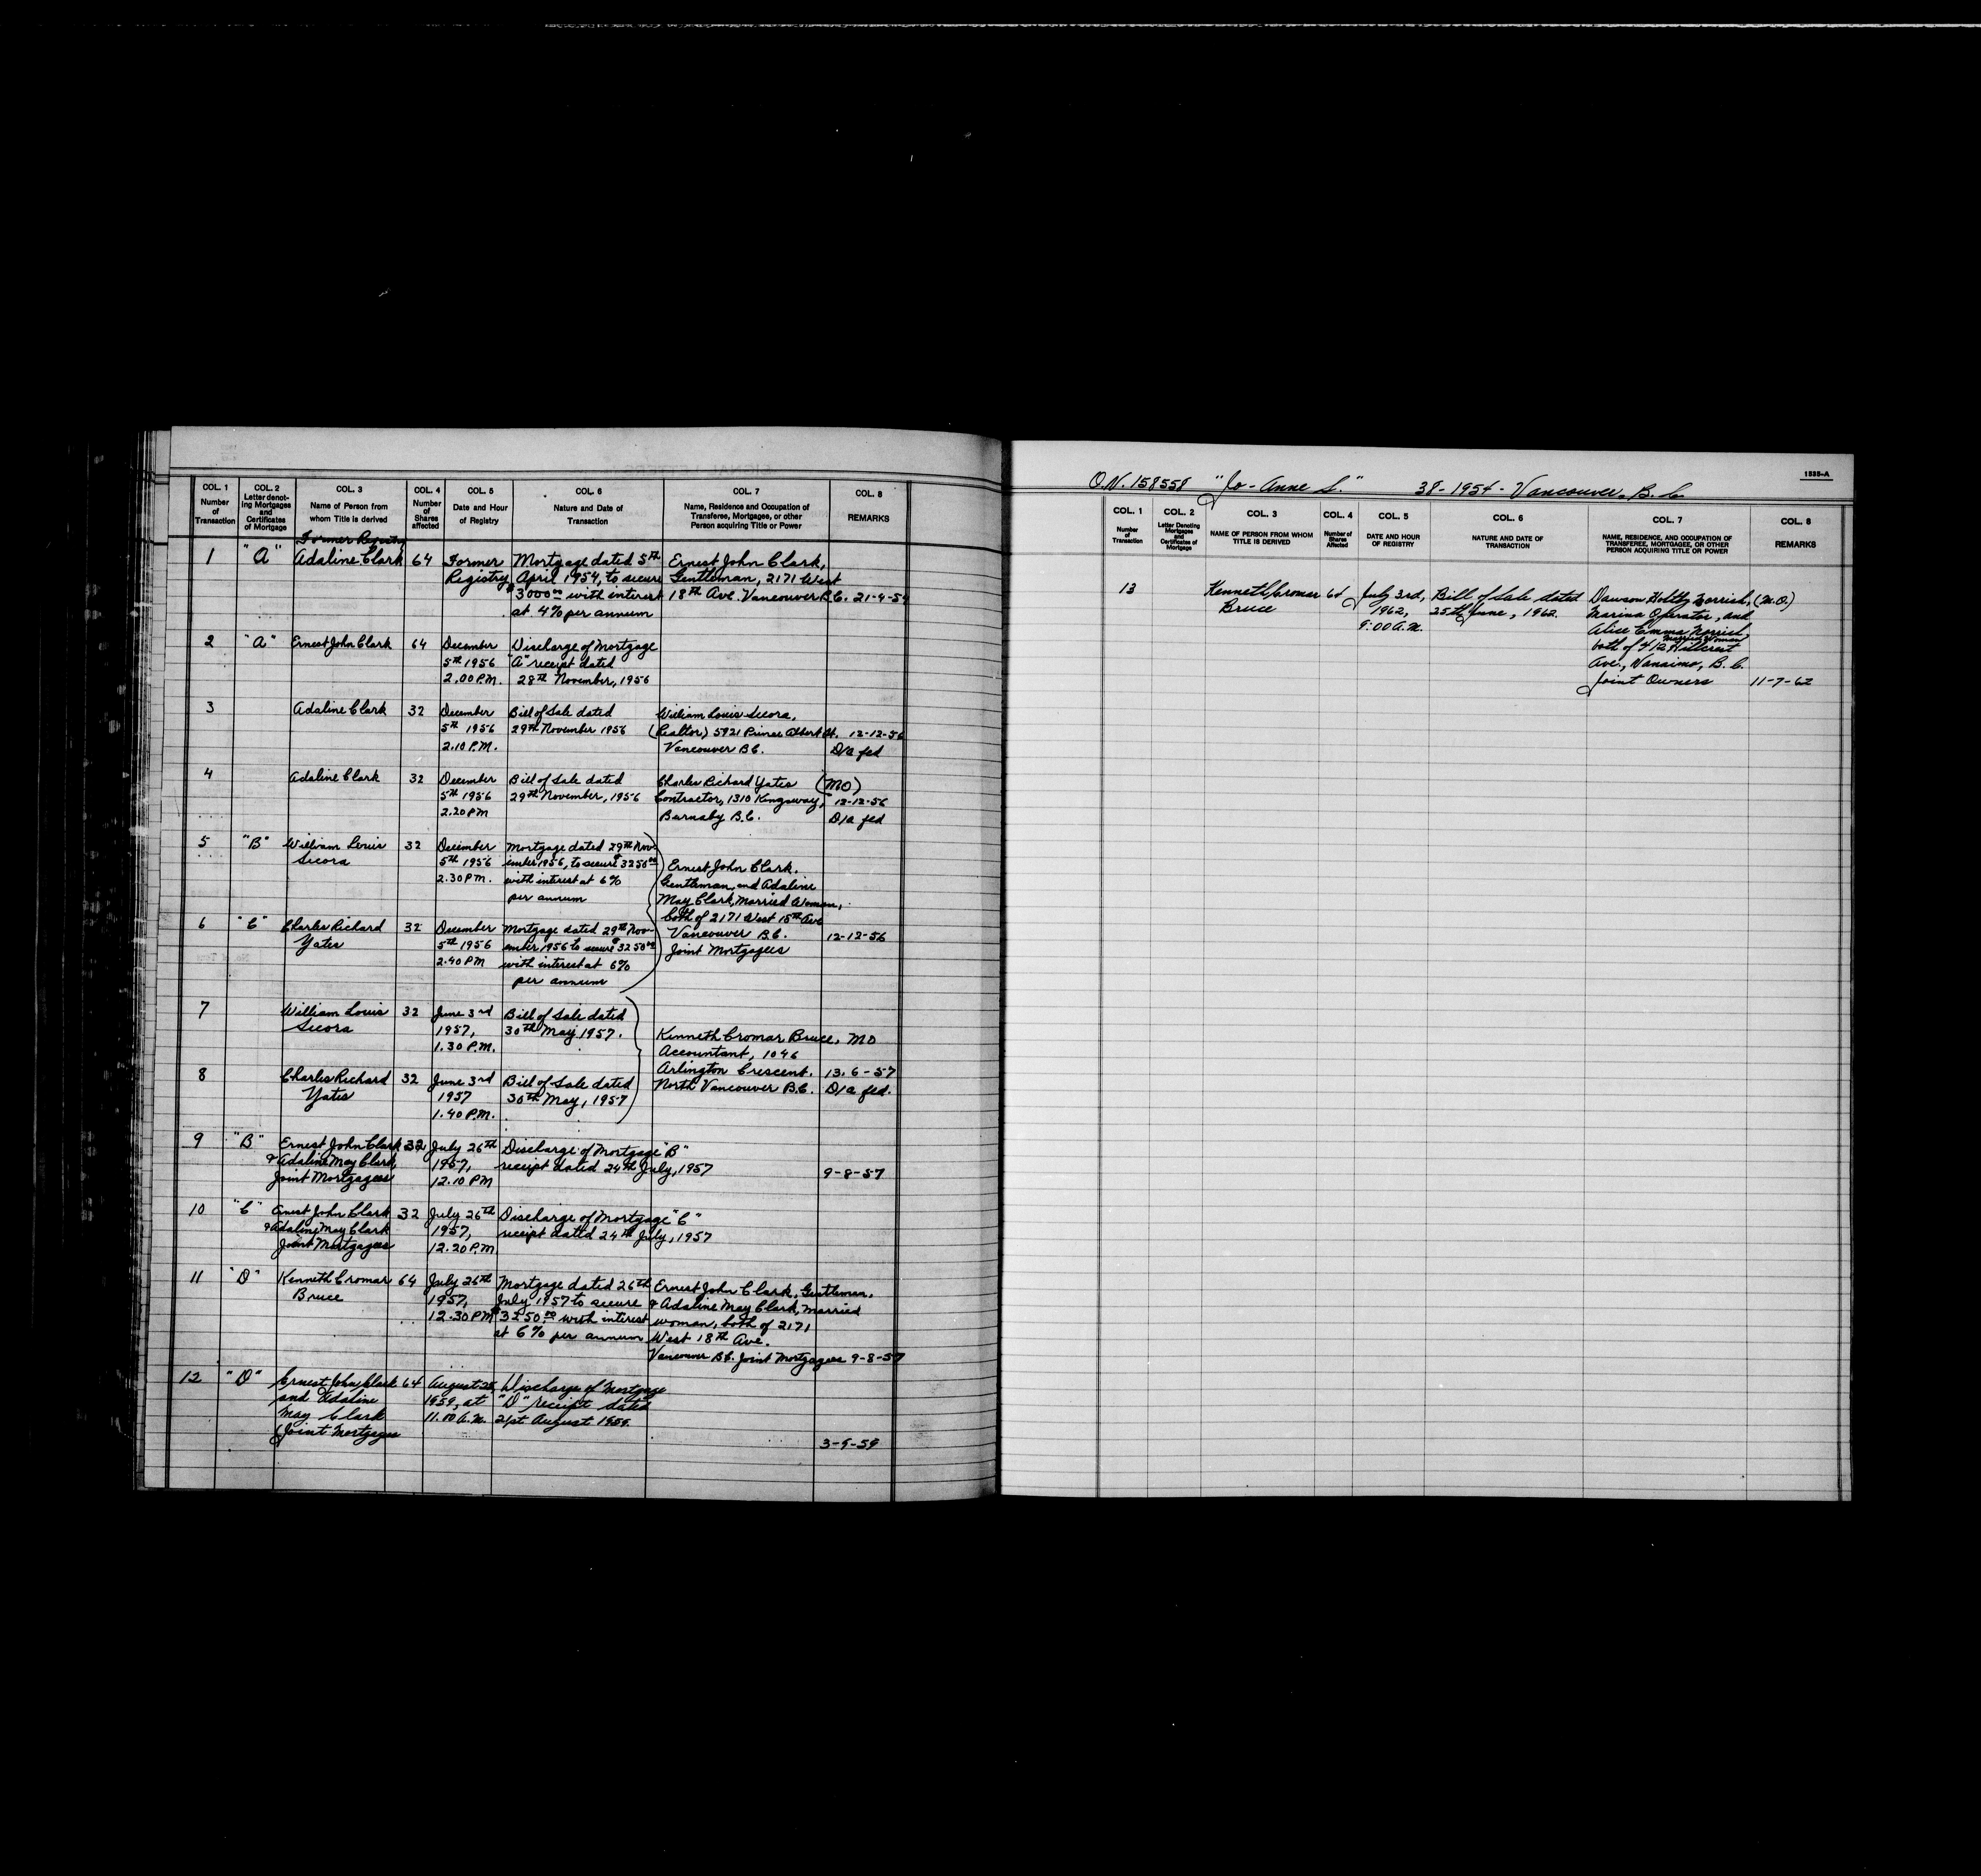 COL. 1 COL. 2 COL. 3 COL. 4 COL. 5 COL. 6 COL. 7 COL. 8
Number of Transaction
Letter denoting Mortgages and Certificates of Mortgage
Name of Person from whom Title is derived
Number of Shares affected
Date and Hour of Registry
Nature and Date of Transaction
Name, Residence and Occupation of Transferee, Mortgagee, or other Person acquiring Title or Power
REMARKS
Former Registry
1 "A" Adaline Clark 64 Former Mortgage dated 5th Ernest John Clark,
Registry April 1954, to secure Gentleman, 2171 West
$3000.00 with interest 18th Ave. Vancouver B.C. 21-4-54
at 4% per annum
2 "A" Ernest John Clark 64 December Discharge of Mortgage
5th 1956 "A" receipt dated
2.00 P.M. 28th November, 1956
3 Adaline Clark 32 December Bill of Sale dated William Louis Secora,
5th 1956 29th November 1956 (Realtor) 5921 Prince Albert St. 12-12-56
2.10 P.M. Vancouver B.C. D/a fed
4 Adaline Clark 32 December Bill of Sale dated Charles Richard Yates (MO)
5th 1956 29th November, 1956 Contractor, 1310 Kingsway, 12-12-56
2.20 PM Burnaby B.C. D/a fed
5 "B" William Louis 32 December Mortgage dated 29th Nov-
Secora 5th 1956 ember 1956, to secure $3250.00 Ernest John Clark,
2.30 P.M. with interest at 6% Gentleman, and Adaline
per annum May Clark, Married Woman,
both of 2171 West 18th Ave
6 "C" Charles Richard 32 December Mortgage dated 29th Nov- Vancouver B.C. 12-12-56
Yates 5th 1956 ember 1956 to secure $3250.00 Joint Mortgagees
2.40 PM with interest at 6%
per annum
7 William Louis 32 June 3rd Bill of Sale dated
Secora 1957, 30th May 1957. Kenneth Cromar Bruce, MO
1.30 P.M. Accountant, 1046
Arlington Crescent. 13.6-57
8 Charles Richard 32 June 3rd Bill of Sale dated North Vancouver B.C. D/a fed.
Yates 1957 30th May, 1957
1.40 P.M.
9 "B" Ernest John Clark 32 July 26th Discharge of Mortgage "B"
& Adaline May Clark, 1957, receipt dated 24th July, 1957 9-8-57
Joint Mortgagees 12.10 PM
10 "C" Ernest John Clark 32 July 26th Discharge of Mortgage "C"
& Adaline May Clark 1957, receipt dated 24th July, 1957
Joint Mortgagees 12.20 P.M.
11 "D" Kenneth Cromar 64 July 26th Mortgage dated 26th Ernest John Clark, Gentleman,
Bruce 1957, July 1957 to secure & Adaline May Clark, Married
12.30 PM $3250.00 with interest woman, both of 2171
at 6% per annum West 18th Ave.
Vancouver B.C. Joint Mortgagees 9-8-57
12 "D" Ernest John Clark 64 August Discharge of Mortgage
and Adaline 1959, at "D" receipt dated
May Clark 11.10 A.M. 21st August 1959.
Joint Mortgagees
3-9-59
1535-A
O.N. 158558 "Jo-Anne S." 38-1954-Vancouver, B.C.
COL. 1 COL. 2 COL. 3 COL. 4 COL. 5 COL. 6 COL. 7 COL. 8
Number of Transaction
Letter Denoting Mortgages and Certificates of Mortgage
NAME OF PERSON FROM WHOM TITLE IS DERIVED
Number of Shares Affected
DATE AND HOUR OF REGISTRY
NATURE AND DATE OF TRANSACTION
NAME, RESIDENCE, AND OCCUPATION OF TRANSFEREE, MORTGAGEE, OR OTHER PERSON ACQUIRING TITLE OR POWER
REMARKS
13 Kenneth Cromar 64 July 3rd, Bill of Sale dated Dawson Norrish, (M.O.)
Bruce 1962, 25th June, 1962. Marina Operator, and
9:00 A.M. Alice Emma Norrish,
Married Woman
both of 412 Hillcrest
Ave., Nanaimo, B.C.
Joint Owners 11-7-62